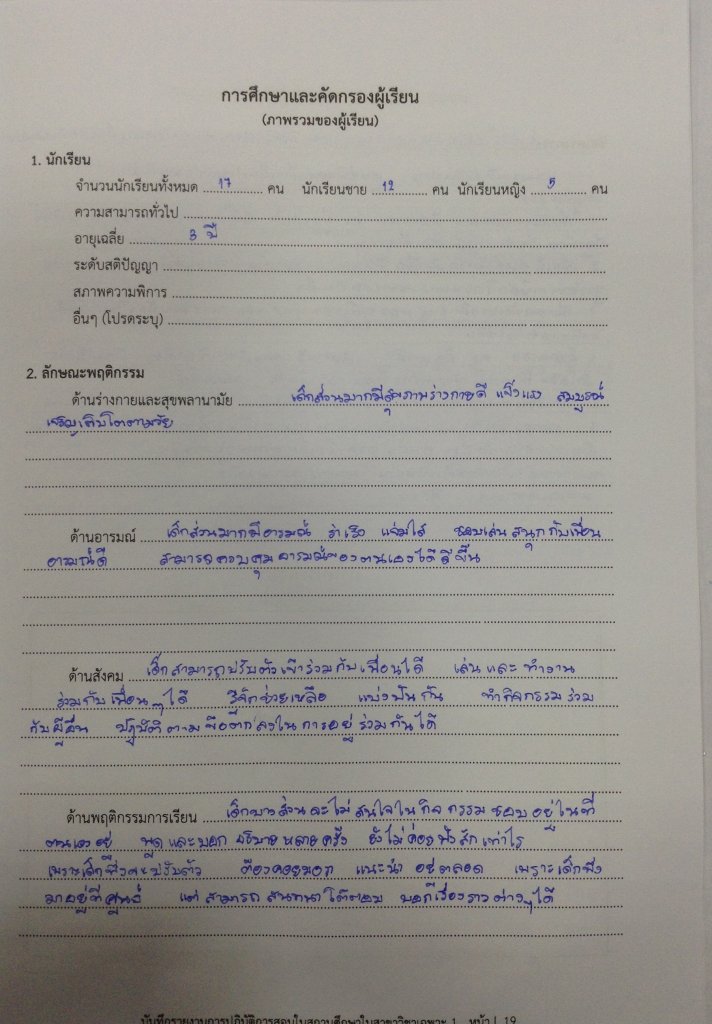 การศึกษาและคัดกรองผู้เรียน
(ภาพรวมของผู้เรียน)
1. นักเรียน
จำนวนนักเรียนทั้งหมด 17 คน นักเรียนชาย 12 คน นักเรียนหญิง 5 คน
ความสามารถทั่วไป
อายุเฉลี่ย 3 ปี
ระดับสติปัญญา
สภาพความพิการ
อื่นๆ (โปรดระบุ)
2. ลักษณะพฤติกรรม
ด้านร่างกายและสุขพลานามัย เด็กส่วนมากมีสุขภาพร่างกายดี แข็งแรง สมบูรณ์
เจริญเติบโตตามวัย
ด้านอารมณ์ เด็กส่วนมากมีอารมณ์ ร่าเริง แจ่มใส ชอบเล่นสนุกกับเพื่อน
อารมณ์ดี สามารถควบคุมอารมณ์ของตนเองได้ดีขึ้น
ด้านสังคม เด็กสามารถปรับตัวเข้าร่วมกับเพื่อนได้ เล่นและทำงาน
ร่วมกับเพื่อนๆได้ รู้จักช่วยเหลือ แบ่งปันกัน ทำกิจกรรมร่วม
กับผู้อื่น ปฏิบัติตามข้อตกลงในการอยู่ร่วมกันได้
ด้านพฤติกรรมการเรียน เด็กบางส่วนจะไม่สนใจในกิจกรรม ชอบอยู่ในที่
ตนเองอยู่ พูดและบอก อธิบายหลายครั้ง ยังไม่ค่อยฟังสักเท่าไร
เพราะเด็กพึ่งจะปรับตัว ต้องคอยบอก แนะนำ อยู่ตลอด เพราะเด็กพึ่ง
มาอยู่ที่ศูนย์ แต่สามารถสนทนาโต้ตอบ บอกเรื่องราวต่างๆได้
บันทึกรายงานการปฏิบัติการสอนในสถานศึกษาในสาขาวิชาเฉพาะ 1 หน้า | 19